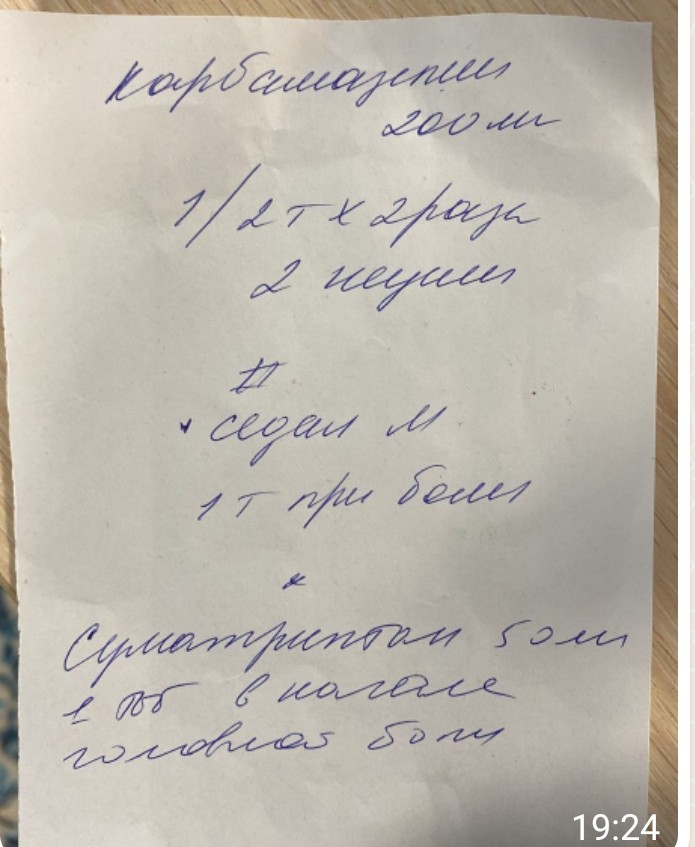 Карбамазепин
200 мг
1/2 т х 2 раза
2 недели
II
седал М
1 т при боли
Суматриптан 50 мг
1 тб в начале
головной боли
19:24